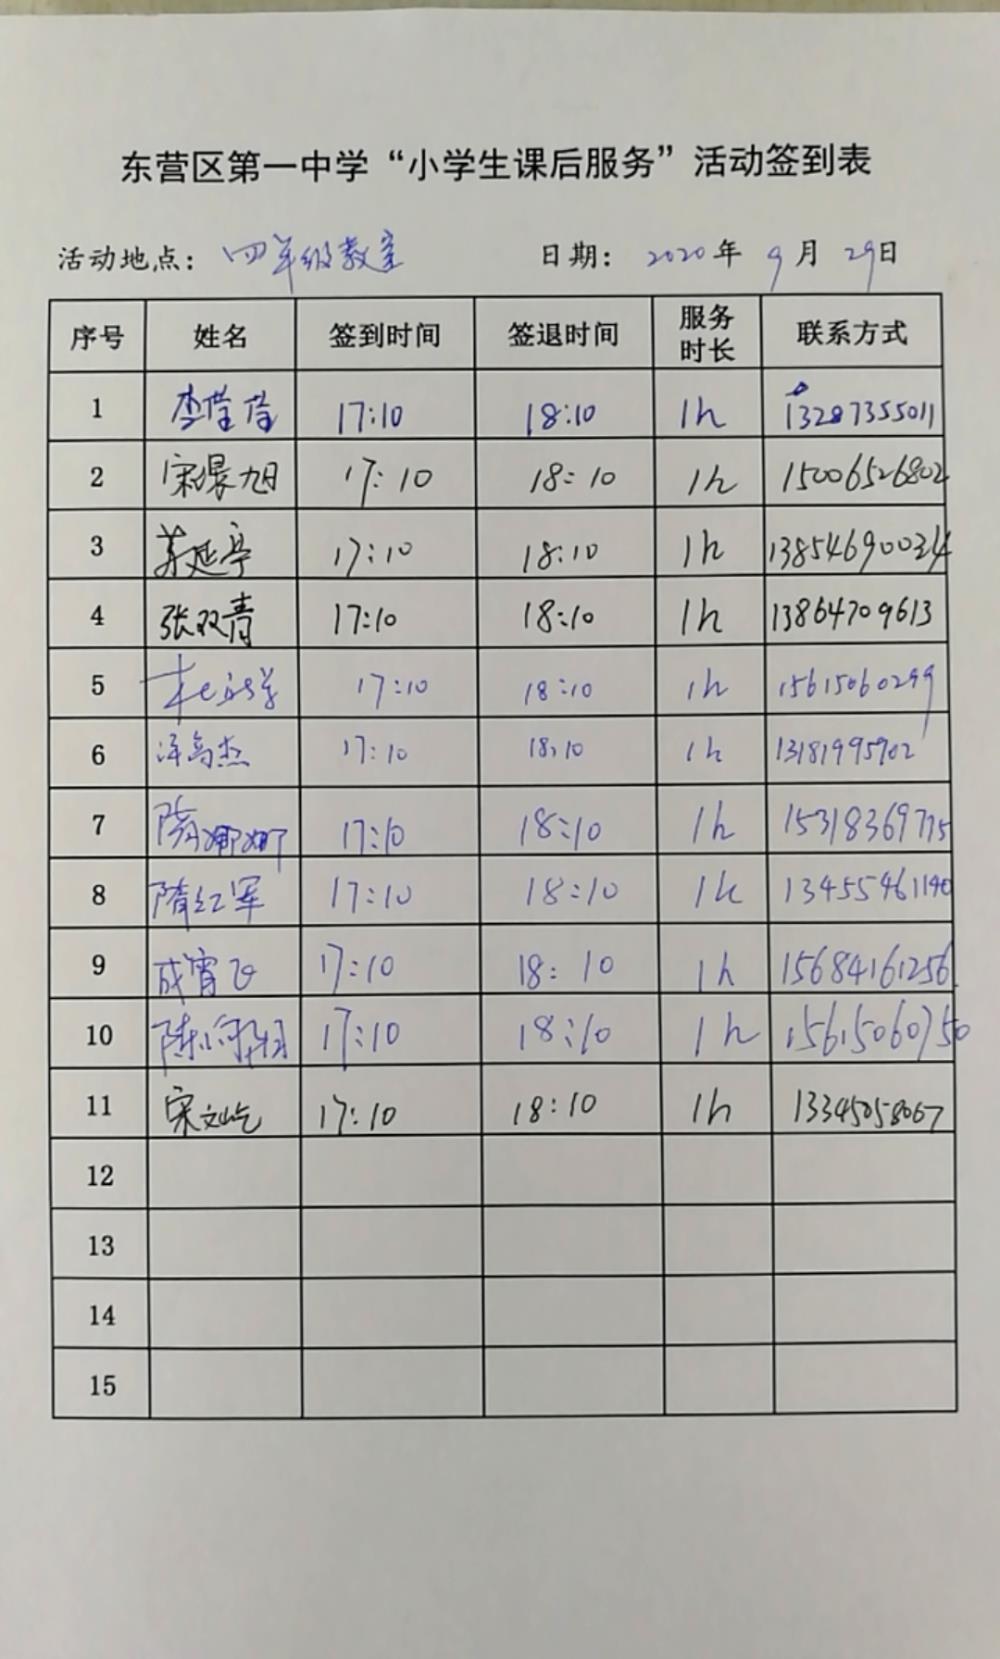 东营区第一中学“小学生课后服务”活动签到表
活动地点：四年级教室 日期：2020年9月29日
序号 姓名 签到时间 签退时间 服务时长 联系方式
1 李莹莹 17:10 18:10 1h 13287355011
2 宋景旭 17:10 18:10 1h 15006526802
3 17:10 18:10 1h
4 张双青 17:10 18:10 1h 13864709613
5 17:10 18:10 1h 15615060299
6 17:10 18:10 1h 13181995902
7 隋娜娜 17:10 18:10 1h 15318369775
8 隋红军 17:10 18:10 1h 13455461140
9 成霄飞 17:10 18:10 1h 15684161256
10 17:10 18:10 1h 15615060750
11 宋文屹 17:10 18:10 1h 13345058067
12
13
14
15